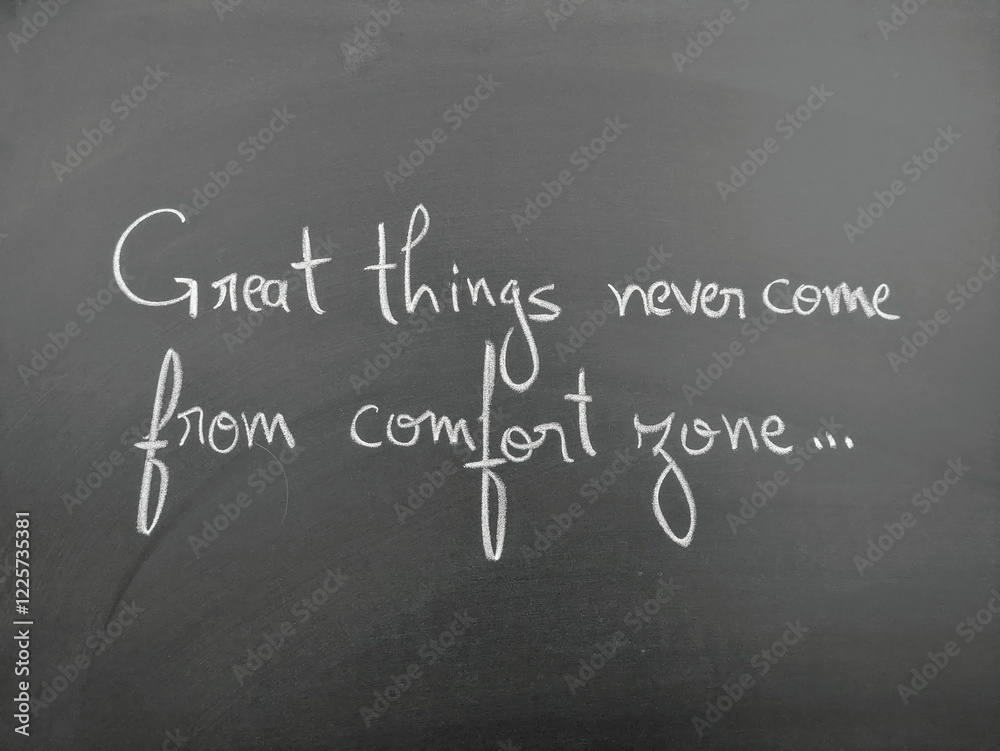 Great things never come
from comfort zone...
Adobe Stock | #1225735381